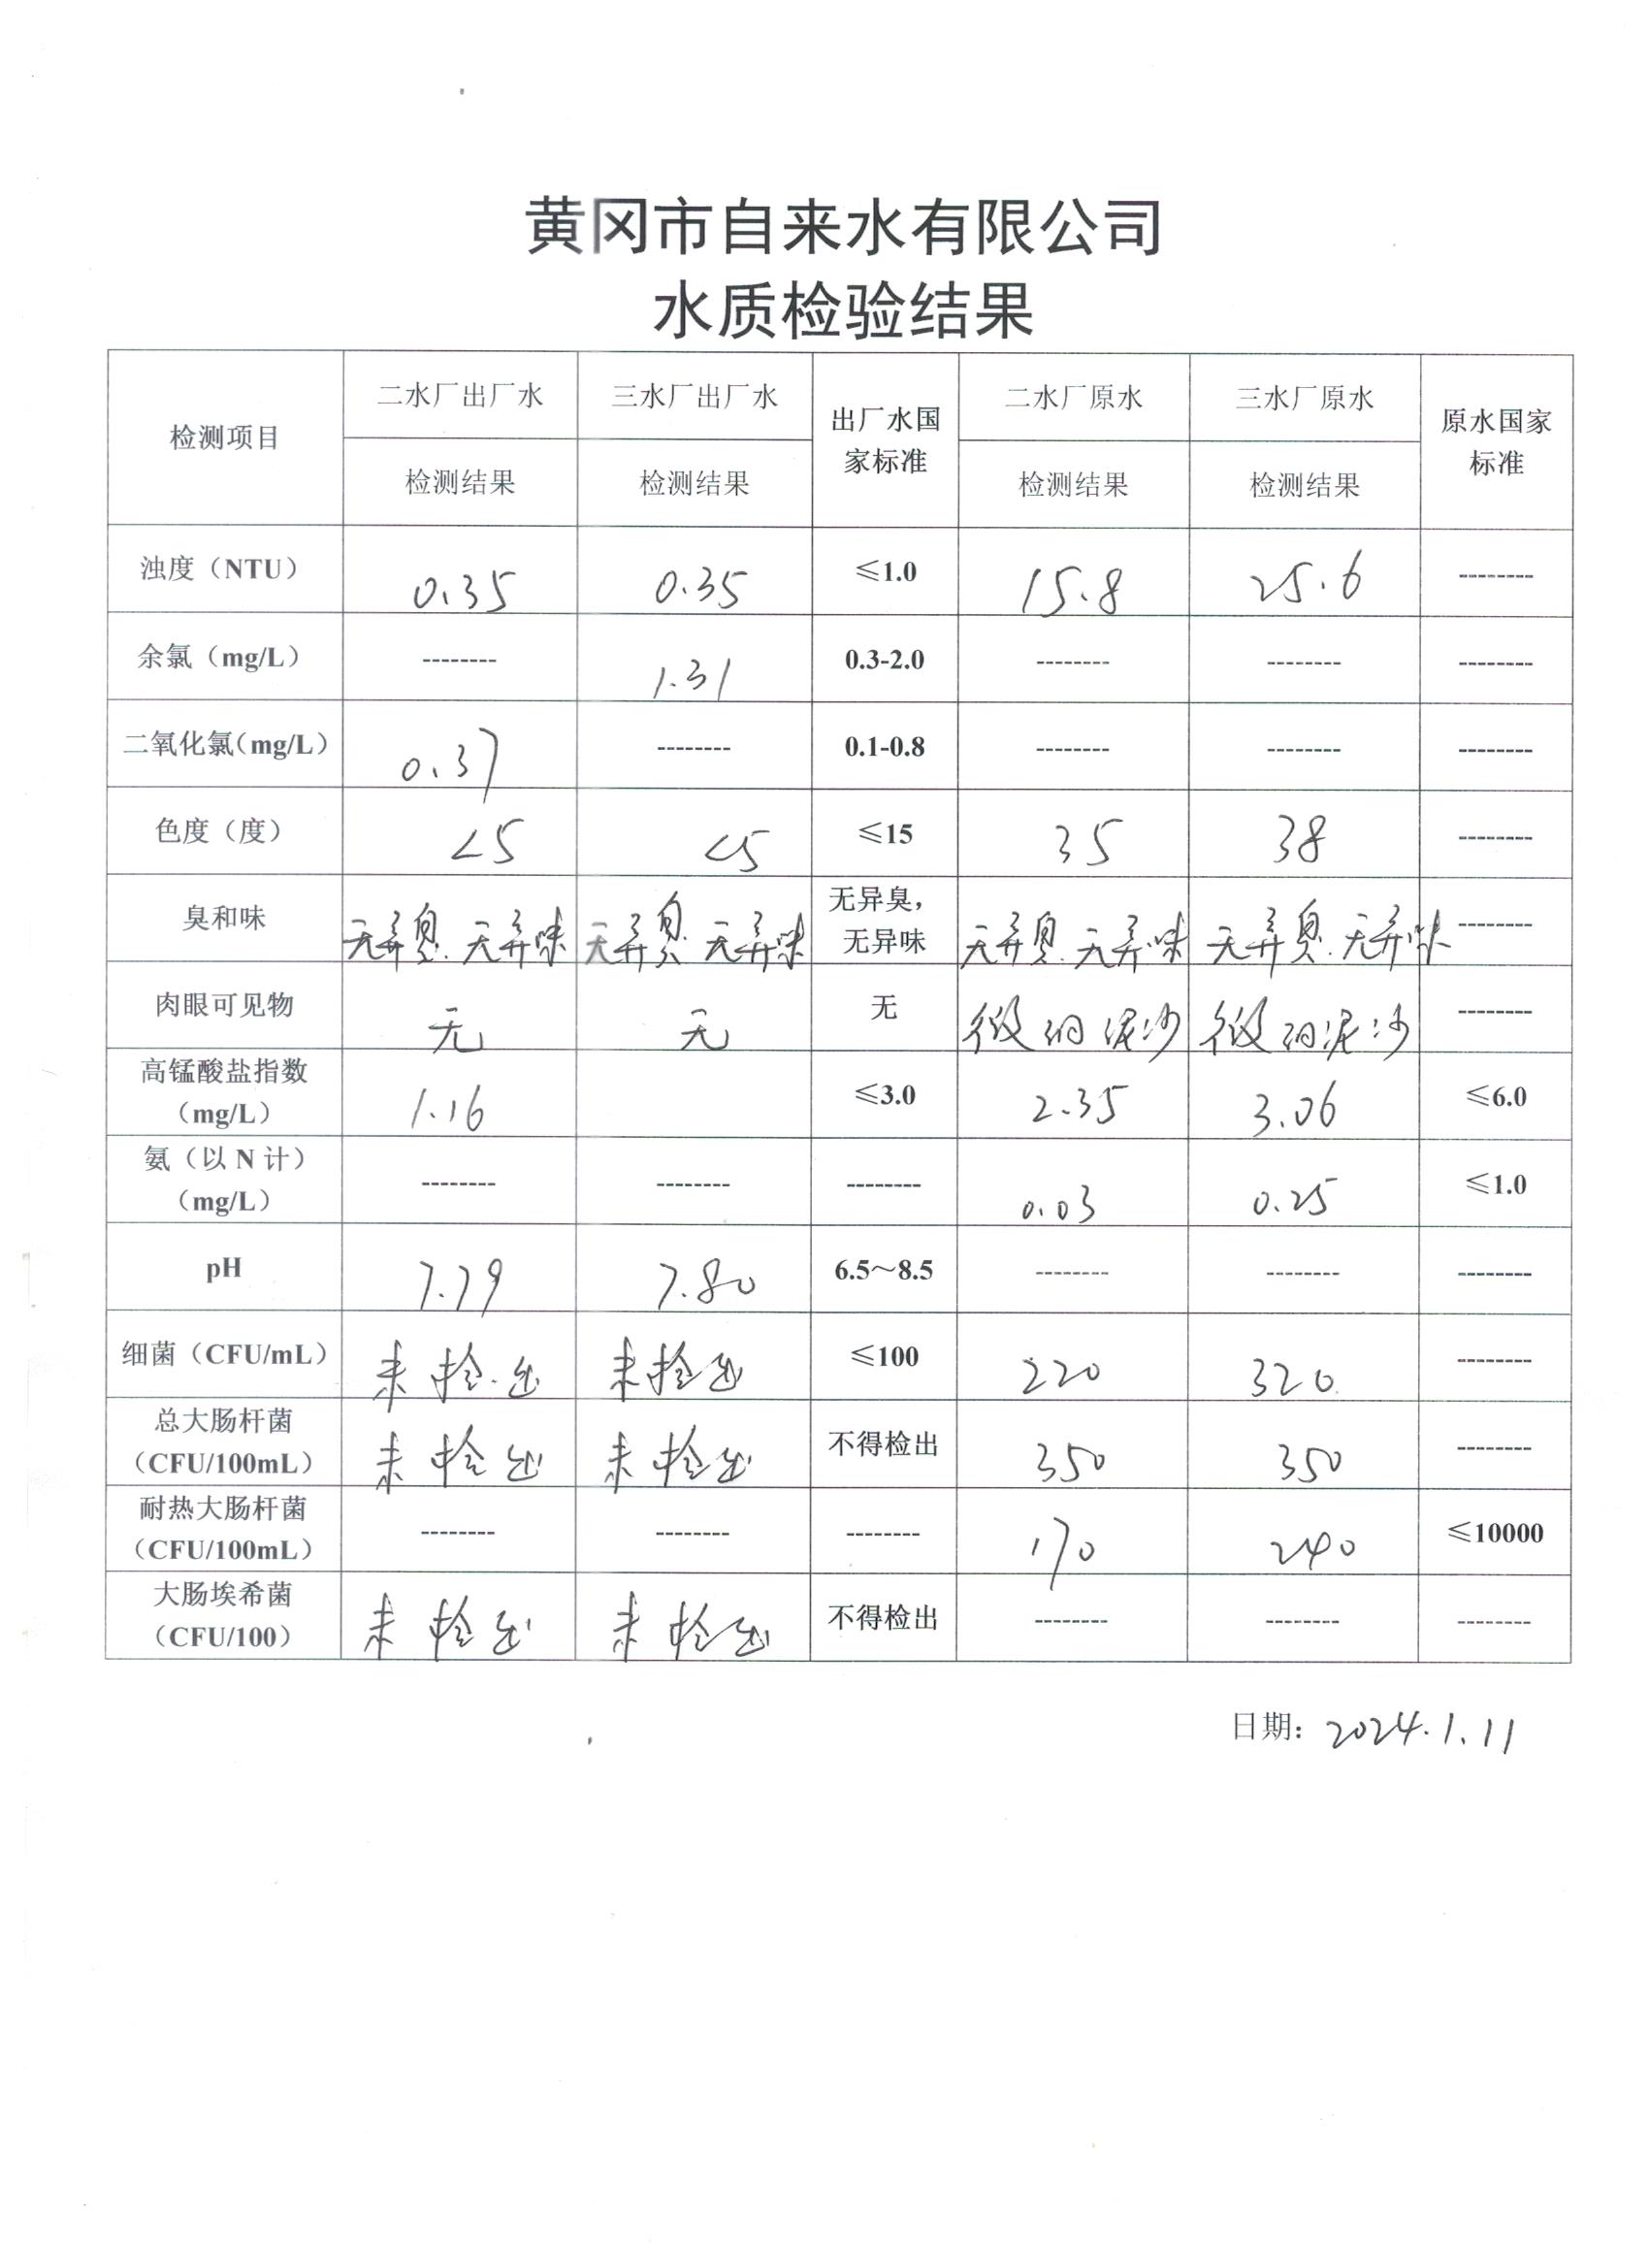 黄冈市自来水有限公司
水质检验结果
检测项目 二水厂出厂水 三水厂出厂水 出厂水国家标准 二水厂原水 三水厂原水 原水国家标准
检测结果 检测结果 检测结果 检测结果
浊度（NTU） 0.35 0.35 ≤1.0 15.8 25.6 --------
余氯（mg/L） -------- 1.31 0.3-2.0 -------- -------- --------
二氧化氯（mg/L） 0.37 -------- 0.1-0.8 -------- -------- --------
色度（度） <5 <5 ≤15 35 38 --------
臭和味 无异臭.无异味 无异臭.无异味 无异臭，无异味 无异臭.无异味 无异臭.无异味 --------
肉眼可见物 无 无 无 微细泥沙 微细泥沙 --------
高锰酸盐指数（mg/L） 1.16 ≤3.0 2.35 3.06 ≤6.0
氨（以 N 计）（mg/L） -------- -------- -------- 0.03 0.25 ≤1.0
pH 7.79 7.80 6.5～8.5 -------- -------- --------
细菌（CFU/mL） 未检出 未检出 ≤100 220 320 --------
总大肠杆菌（CFU/100mL） 未检出 未检出 不得检出 350 350 --------
耐热大肠杆菌（CFU/100mL） -------- -------- -------- 170 240 ≤10000
大肠埃希菌（CFU/100） 未检出 未检出 不得检出 -------- -------- --------
日期：2024.1.11